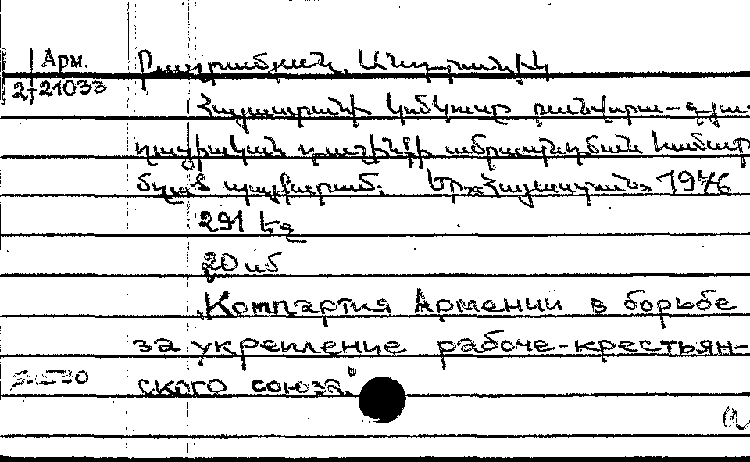 Арм.
2-21033
Հայաստանի կոմկուսը բանվորա-գյու-
ղացիական դաշինքի ամրապնդման համար
մղած պայքարում: Եր., «Հայաստան», 1976
291 էջ
20 սմ
Компартия Армении в борьбе
за укрепление рабоче-крестьян-
ского союза.